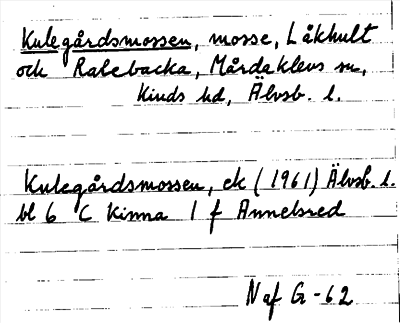 Kulegårdsmossen, mosse, Låkhult
och Ralebacka, Mårdaklevs sn,
Kinds hd, Älvsb. l.
Kulegårdsmossen, ek (1961) Älvsb. l.
bl 6 C Kinna 1 f Annelsred
N af G -62